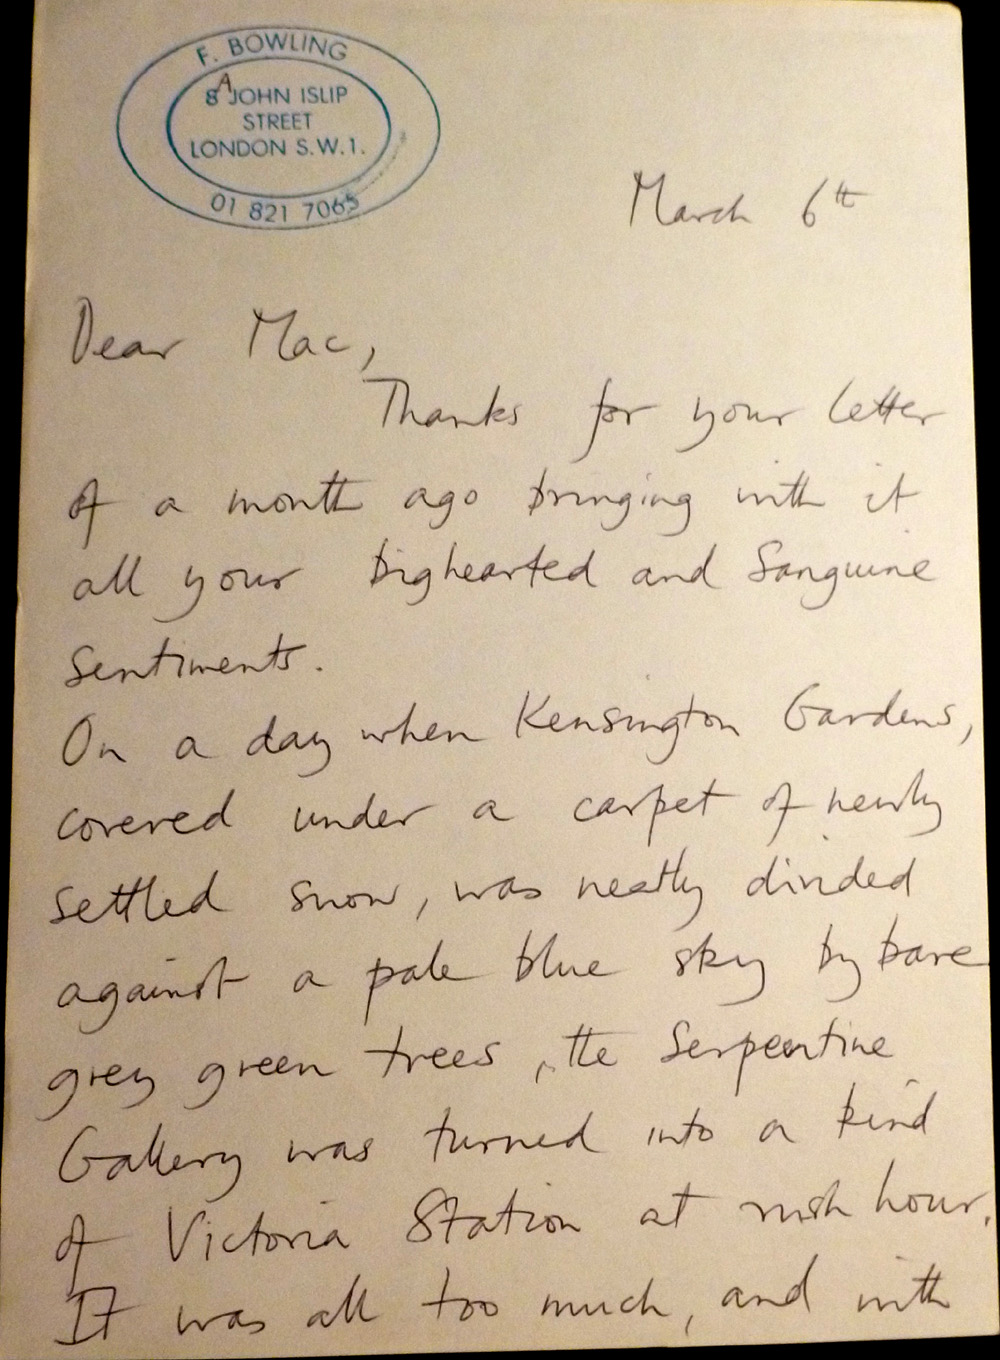 F. BOWLING
8A JOHN ISLIP
STREET
LONDON S.W.1.
01 821 7065
March 6th
Dear Mac,
Thanks for your letter
of a month ago bringing with it
all your bighearted and sanguine
sentiments.
On a day when Kensington Gardens,
covered under a carpet of newly
settled snow, was neatly divided
against a pale blue sky by bare
grey green trees, the Serpentine
Gallery was turned into a kind
of Victoria Station at rush hour.
It was all too much, and with